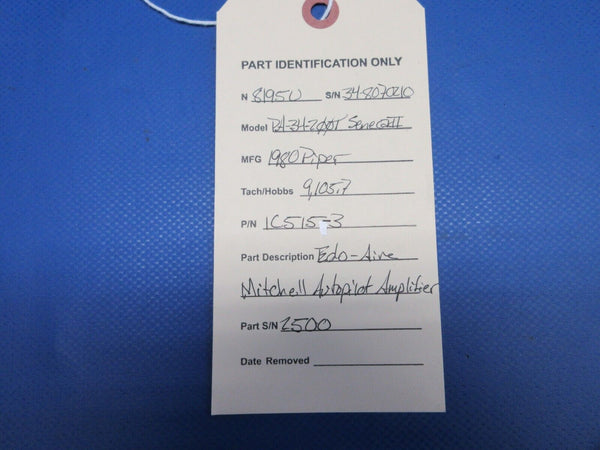 PART IDENTIFICATION ONLY
N 8195U S/N 34-8070210
Model PA-34-200T Seneca II
MFG 1980 Piper
Tach/Hobbs 9,105.7
P/N 1C515-3
Part Description Edo-Aire
Mitchell Autopilot Amplifier
Part S/N 2500
Date Removed